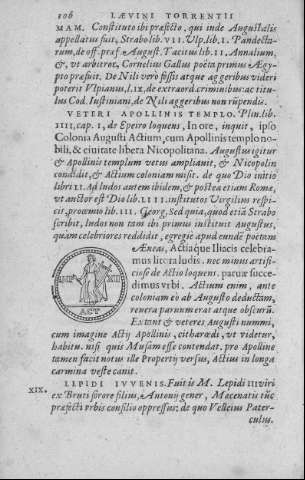 106 LAEVINI TORRENTII
MAM. Constituto ibi præfecto, qui inde Augustalis
appellatus fuit, Strabo lib. VII. Vlp. lib. I. Pandecta-
rum, de off. præf. August. Tacitus lib. II. Annalium,
&, vt arbitror, Cornelius Gallus poëta primus Ægy-
pto præfuit. De Nili verò fossis atque aggeribus videri
poterit Vlpianus, l. IX. de extraord. criminibus: ac titu-
lus Cod. Iustiniani, de Nili aggeribus non rūpendis.
VETERI APOLLINIS TEMPLO. Plin. lib.
IIII, cap. I, de Epeiro loquens, In ore, inquit, ipso
Colonia Augusti Actium, cum Apollinis templo no-
bili, & ciuitate libera Nicopolitana. Augustus igitur
& Apollinis templum vetus ampliauit, & Nicopolin
condidit, & Actium coloniam misit. de quo Dio initio
libri LI. Ad ludos autem ibidem, & postea etiam Romæ,
vt auctor est Dio lib. LIII. institutos Virgilius respi-
cit, proœmio lib. III. Georg. Sed quia, quod etiā Strabo
scribit, ludos non tam ibi primus instituit Augustus,
quàm celebriores reddidit, egregiè apud eundē poëtam
Æneas, Actiaque Iliacis celebra-
mus litora ludis. nec minus artifi-
ciosè de Actio loquens. paruæ succe-
dimus vrbi. Actium enim, ante
coloniam eò ab Augusto deductam,
reuera parua erat atque obscurū.
Extant & veteres Augusti nummi,
cum imagine Actij Apollinis, citharœdi, vt videtur,
habitu. nisi quis Musam esse contendat. pro Apolline
tamen facit notus ille Propertij versus, Actius in longa
carmina veste canit.
ACT
XIX. LEPIDI IVVENIS. Fuit is M. Lepidi IIIviri
ex Bruti sorore filius, Antonij gener, Mæcenatis tūc
præfecti vrbis consilio oppressus: de quo Velleius Pater-
culus.